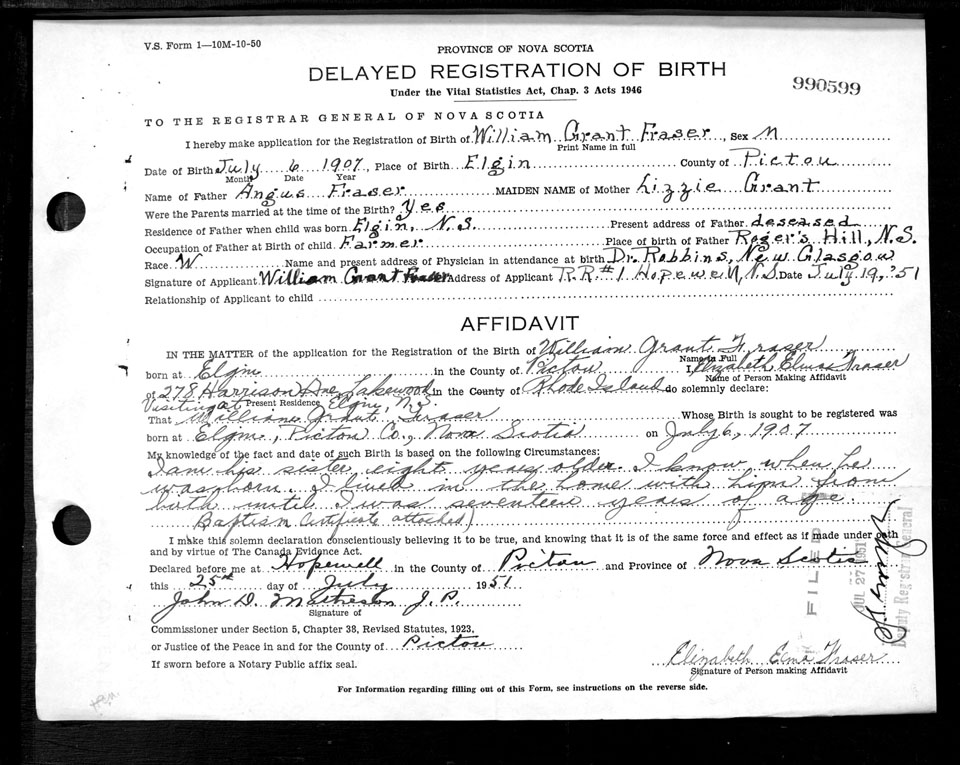 V.S. Form 1—10M-10-50
PROVINCE OF NOVA SCOTIA
DELAYED REGISTRATION OF BIRTH
Under the Vital Statistics Act, Chap. 3 Acts 1946
990599
TO THE REGISTRAR GENERAL OF NOVA SCOTIA
I hereby make application for the Registration of Birth of William Grant Fraser, Sex M
Print Name in full
Date of Birth July 6 1907, Place of Birth Elgin County of Pictou
Month Date Year
Name of Father Angus Fraser MAIDEN NAME of Mother Lizzie Grant
Were the Parents married at the time of the Birth? Yes
Residence of Father when child was born Elgin, N.S. Present address of Father deseased
Occupation of Father at Birth of child. Farmer Place of birth of Father Roger's Hill, N.S.
Race W Name and present address of Physician in attendance at birth Dr. Robbins, New Glasgow
Signature of Applicant William Grant Fraser Address of Applicant R.R. #1 Hopewell, N.S. Date July 19, '51
Relationship of Applicant to child
AFFIDAVIT
IN THE MATTER of the application for the Registration of the Birth of William Grant Fraser
Name in Full
born at Elgin in the County of Pictou I, Elizabeth Elma Fraser
Name of Person Making Affidavit
of 278 Harrison Ave. Lakewood in the County of Rhode Island do solemnly declare:
Visiting at Present Residence Elgin, N.S.
That William Grant Fraser Whose Birth is sought to be registered was
born at Elgin, Pictou Co., Nova Scotia on July 6, 1907
My knowledge of the fact and date of such Birth is based on the following Circumstances:
I am his sister, eight years older. I know when he
was born. I lived in the home with him from
birth until I was seventeen years of age
Baptism Certificate attached)
I make this solemn declaration conscientiously believing it to be true, and knowing that it is of the same force and effect as if made under oath
and by virtue of The Canada Evidence Act.
Declared before me at Hopewell in the County of Pictou and Province of Nova Scotia
this 25th day of July 1951
John D. Matheson J.P.
Signature of
Commissioner under Section 5, Chapter 38, Revised Statutes, 1923,
or Justice of the Peace in and for the County of Pictou
If sworn before a Notary Public affix seal.
Elizabeth Elma Fraser
Signature of Person making Affidavit
For Information regarding filling out of this Form, see instructions on the reverse side.
FILED
JUL 27 1951
Deputy Registrar General